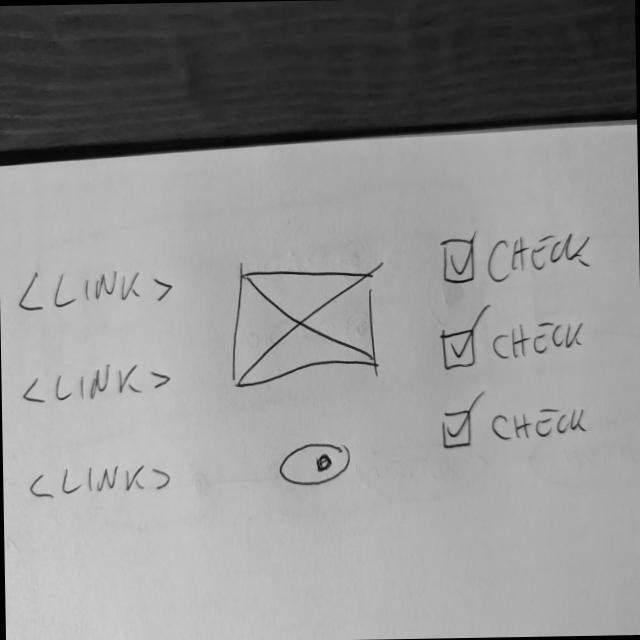 <LINK>
<LINK>
<LINK>
CHECK
CHECK
CHECK